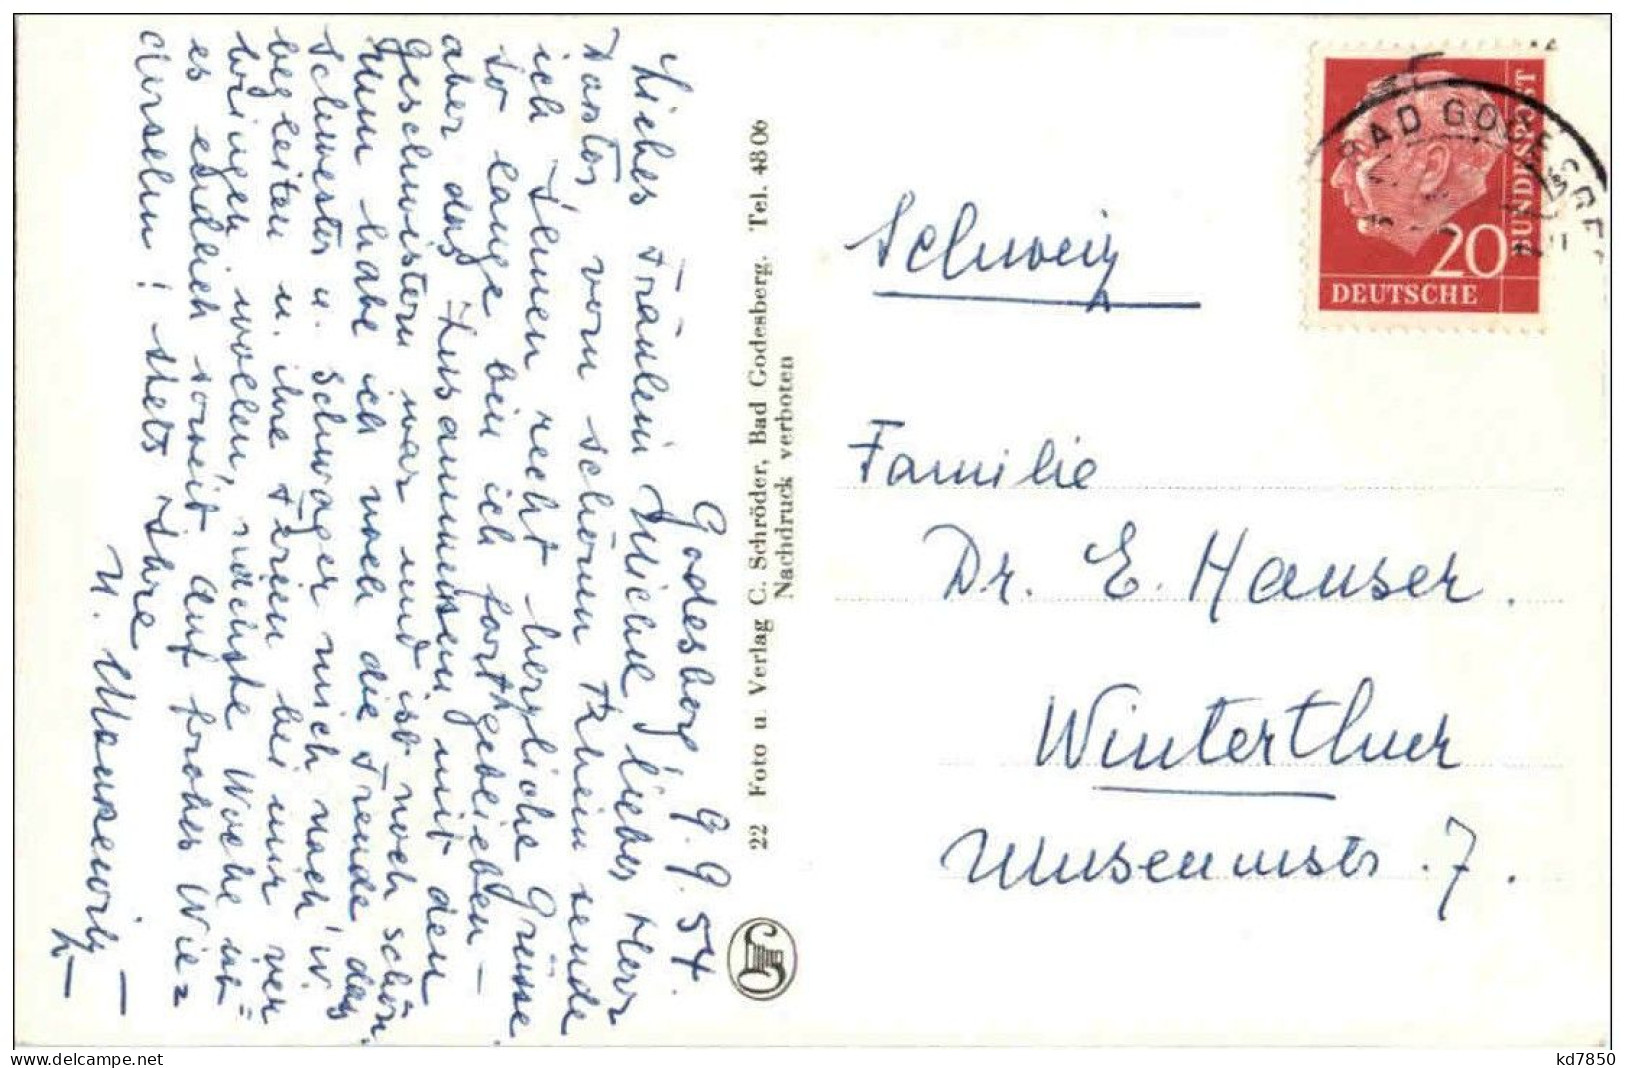 Godesberg, 9. 9. 54.
Liebes Fräulein Michel, lieber Herr
Doktor, vom schönen Rhein sende
ich Ihnen recht herzliche Grüsse.
So lange bin ich fortgeblieben –
aber das Zusammensein mit den
Geschwistern war und ist noch schön.
Nun habe ich noch die Freude, dass
Schwester u. Schwager mich nach W.
begleiten u. ihre Ferien bei mir ver=
bringen wollen, nächste Woche ist
es endlich soweit. Auf frohes Wie=
dersehn! Stets Ihre
Schweiz
Familie
Dr. E. Hauser.
Winterthur
Museumstr. 7.
22 Foto u. Verlag C. Schröder, Bad Godesberg. Tel. 4806
Nachdruck verboten
DEUTSCHE
BUNDESPOST
20
BAD GODESBE
www.delcampe.net
kd7850